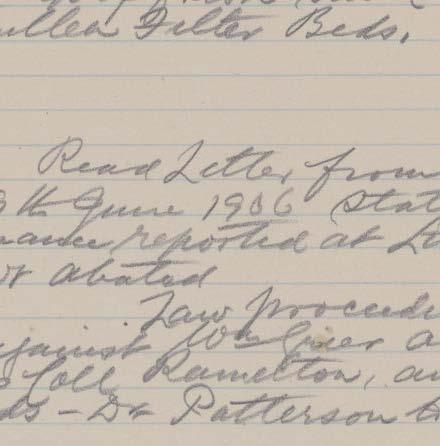 Filter Beds.
Read Letter from
9th June 1906 Stat
nance reported at L
not abated
Law Proceedi
against Wm Grier a
Coll, Ramelton, an
ds - Dr Patterson